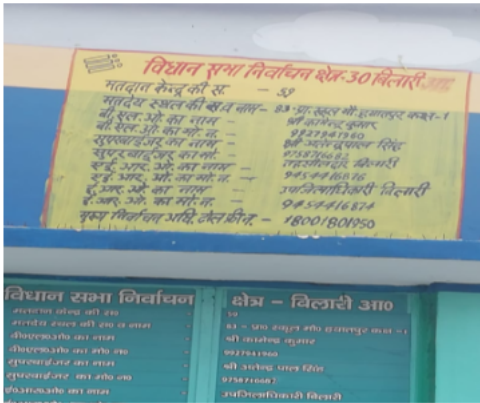 विधान सभा निर्वाचन क्षेत्र-30 बिलारी आ०
मतदान केन्द्र की स. - 59
मतदेय स्थल की सं.व नाम - 83-प्रा. स्कूल मौ. हयातपुर कक्ष-1
बी.एल.ओ. का नाम - श्री कामेन्द्र कुमार
बी.एल.ओ. का मो. न. - 9927941960
सुपरवाईजर का नाम - श्री जतेन्द्रपाल सिंह
सुपरवाईजर का मो. - 9758716682
ए.ई.आर.ओ. का नाम - तहसीलदार बिलारी
ए.ई.आर.ओ. का मो. न. - 9454416876
ई.आर.ओ. का नाम - उपजिलाधिकारी बिलारी
ई.आर.ओ. का मो. न. - 9454416874
मुख्य निर्वाचन अधि. टोल फ्री न. - 18001801950
विधान सभा निर्वाचन क्षेत्र - बिलारी आ०
मतदान केन्द्र की सं० 59
मतदेय स्थल की सं० व नाम 83 - प्रा० स्कूल मौ० हयातपुर कक्ष -1
बी०एल०ओ० का नाम श्री कामेन्द्र कुमार
बी०एल०ओ० का मो० न० 9927941960
सुपरवाईजर का नाम श्री जतेन्द्र पाल सिंह
सुपरवाईजर का मो० न० 9758716682
ई०आर०ओ० का नाम उपजिलाधिकारी बिलारी